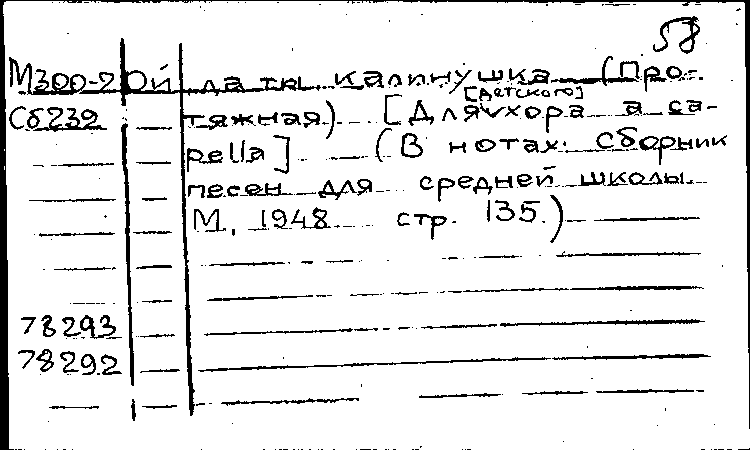 58
М300-2 Ой да ты калинушка (Про-
[детского]
Сб239 тяжная) [Для хора a ca-
pella] (В нотах: сборник
песен для средней школы.
М., 1948 стр. 135.)
78293
78292